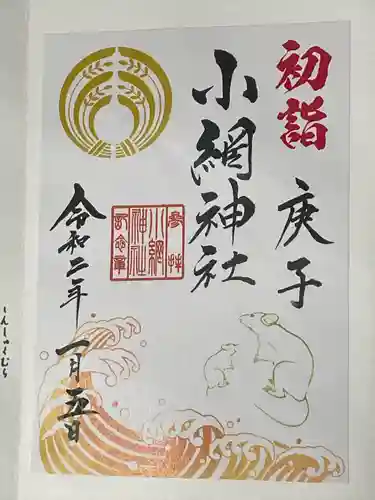 初詣
庚子
小網神社
令和二年
一月五日